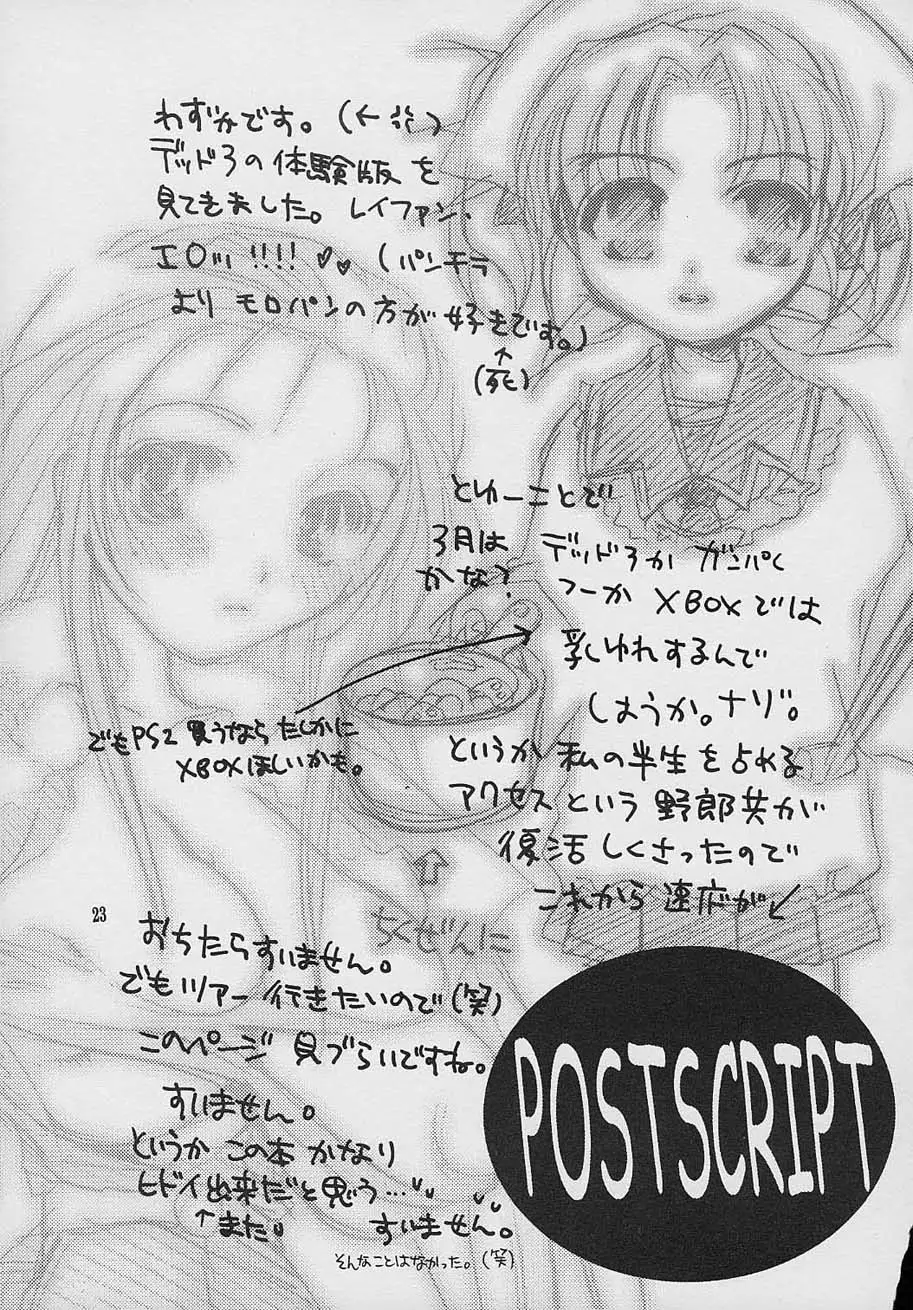 わずかです。(←
デッド3の体験版を
見てきました。レイファン、
エロッ!!!!♡♡(パンチラ
よりモロパンの方が好きです。)
↑
(死)
とゆーことで
3月は デッド3か ガンパく
かな? つーか XBOXでは
乳ゆれするんで
しょうか。ナゾ。
でもPS2買うならたしかに
XBOXほしいかも。
というか私の半生を占める
アクセスという野郎共が
復活しくさったので
これから速応が↙
ちくぜんに
23
おちたらすいません。
でもツアー行きたいので(笑)
このページ見づらいですね。
すいません。
というかこの本かなり
ヒドイ出来だと思う…
↑また すいません。
そんなことはなかった。(笑)
POSTSCRIPT